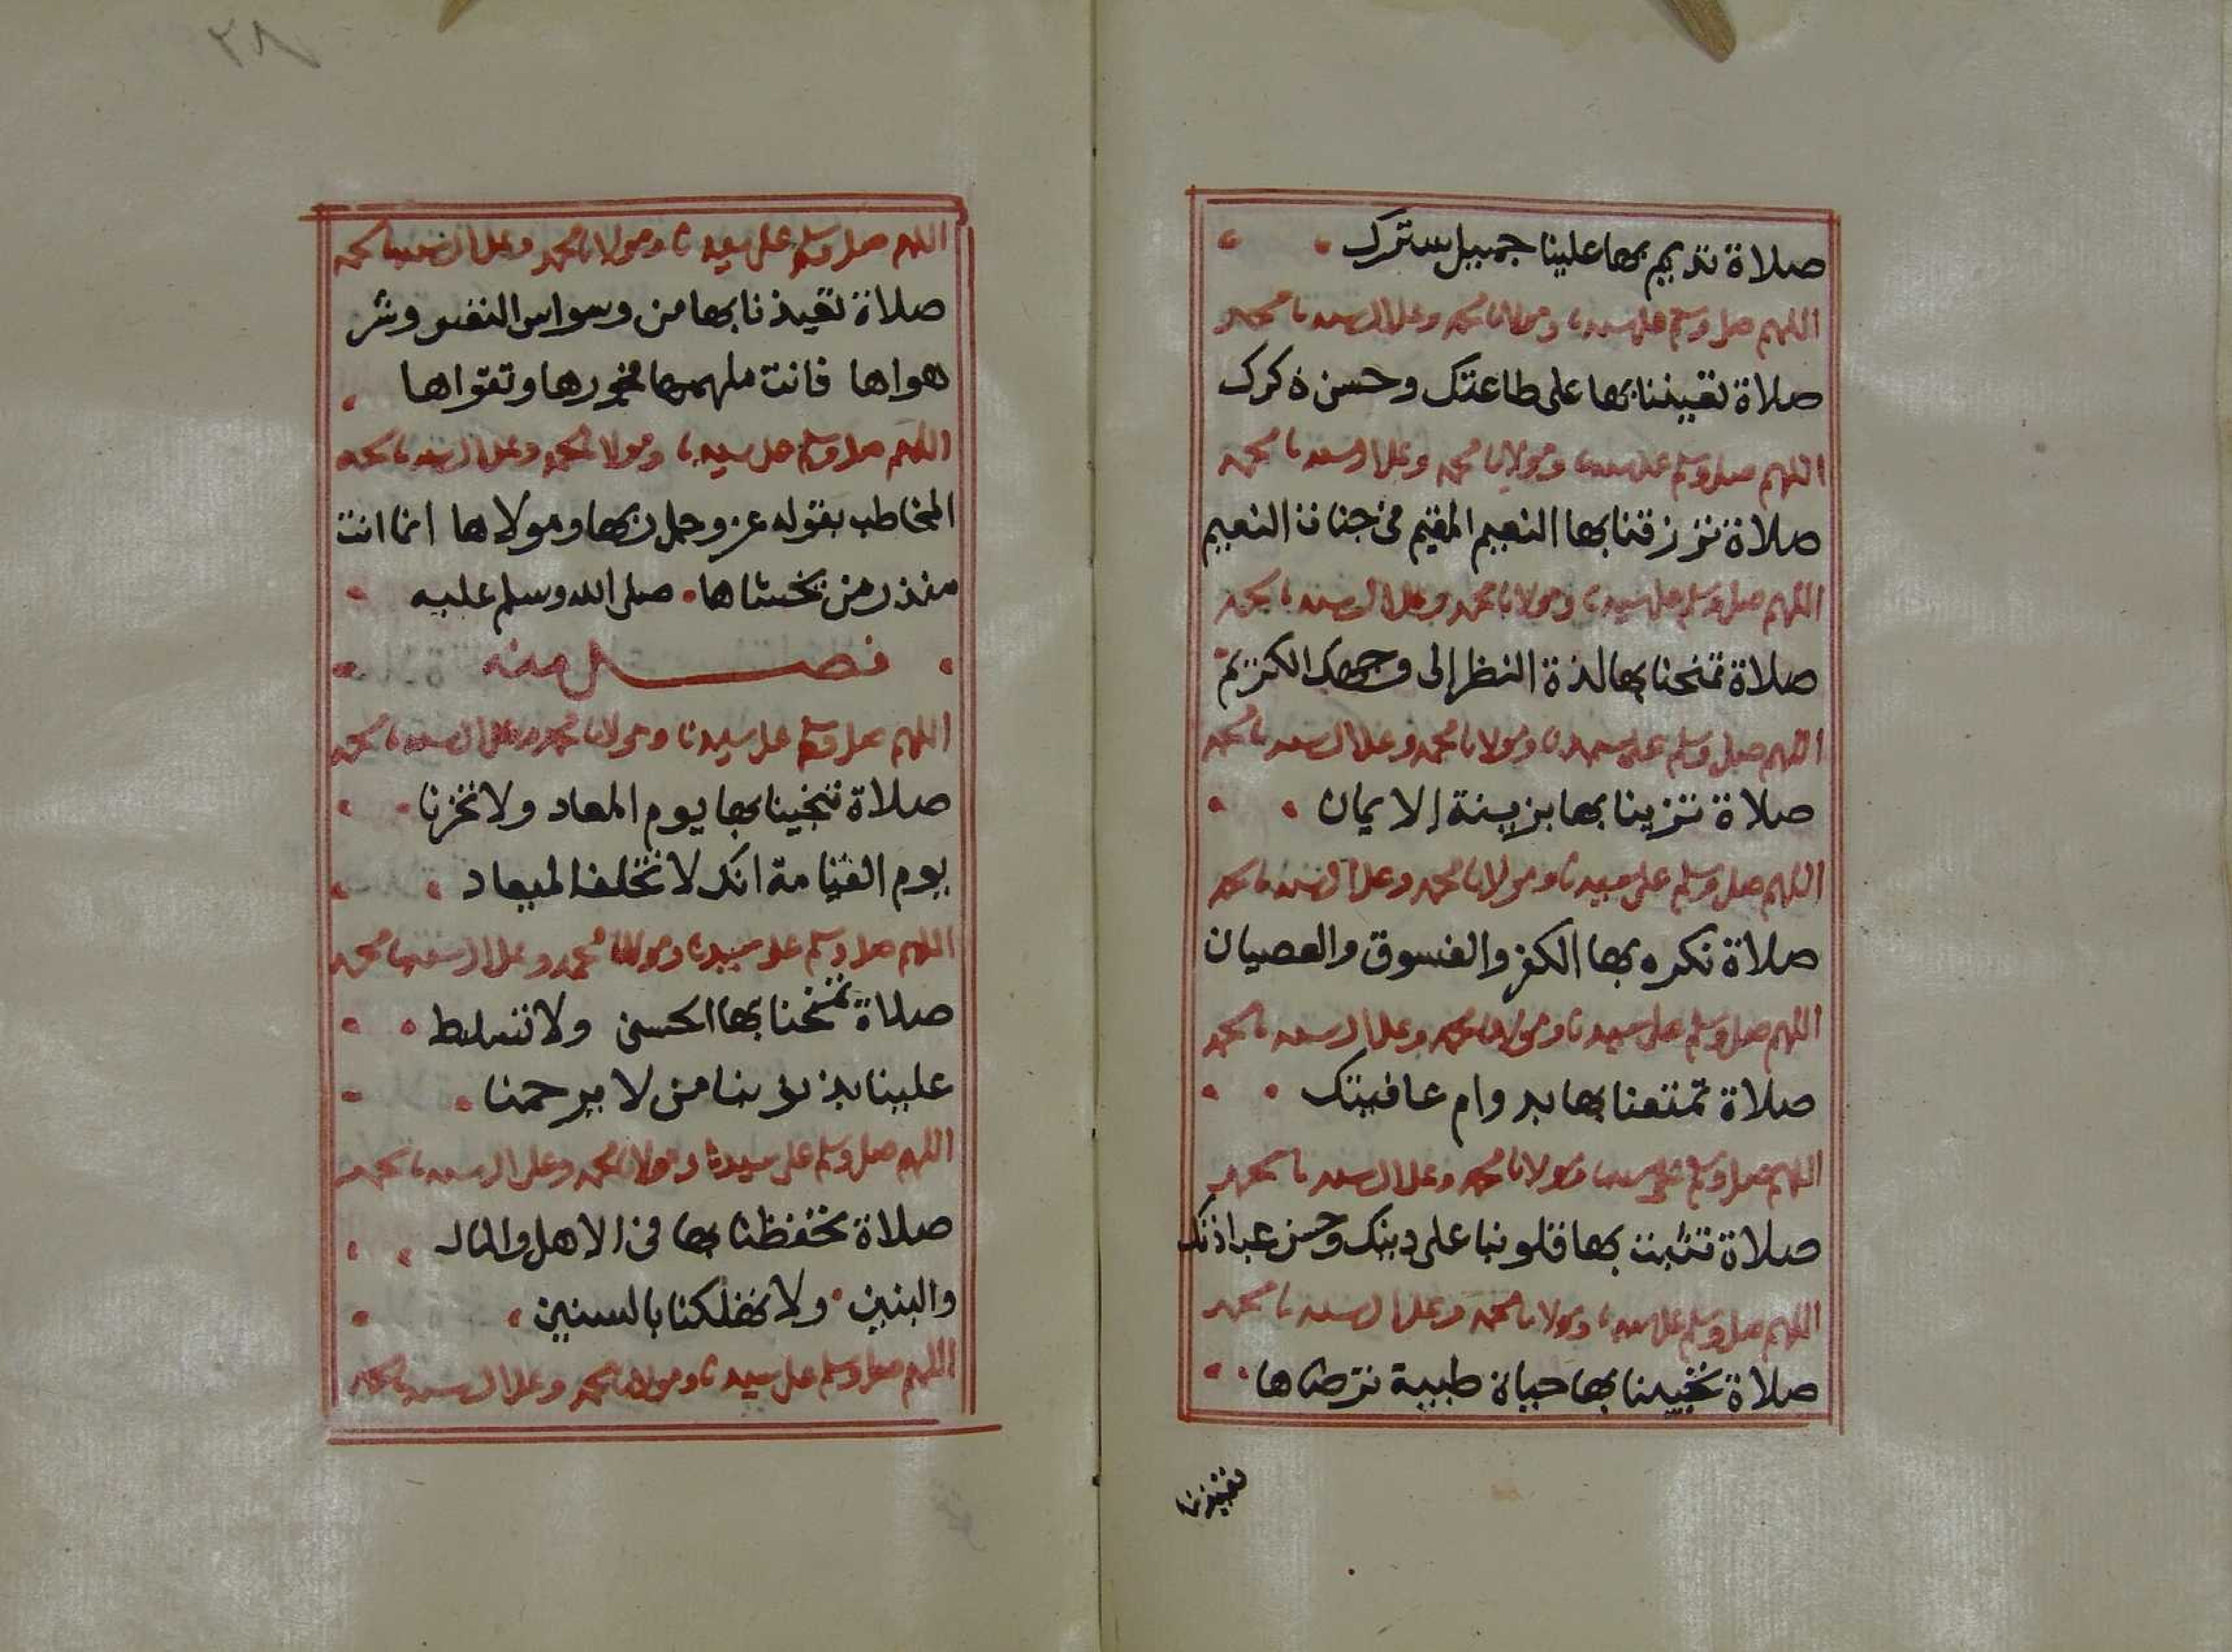 صلاة تديم بها علينا جميل سترك
اللهم صل وسلم على سيدنا ومولانا محمد وعلى ال سيدنا محمد
صلاة تعيننا بها على طاعتك وحسن ذكرك
اللهم صل وسلم على سيدنا ومولانا محمد وعلى ال سيدنا محمد
صلاة ترزقنا بها النعيم المقيم في جنات النعيم
اللهم صل وسلم على سيدنا ومولانا محمد وعلى ال سيدنا محمد
صلاة تمنحنا بها لذة النظر الى وجهك الكريم
اللهم صل وسلم على سيدنا ومولانا محمد وعلى ال سيدنا محمد
صلاة تزينا بها بزينة الايمان
اللهم صل وسلم على سيدنا ومولانا محمد وعلى ال سيدنا محمد
صلاة نكره بها الكفر والفسوق والعصيان
اللهم صل وسلم على سيدنا ومولانا محمد وعلى ال سيدنا محمد
صلاة تمتعنا بها بدوام عافيتك
اللهم صل وسلم على سيدنا ومولانا محمد وعلى ال سيدنا محمد
صلاة تثبت بها قلوبنا على دينك وحسن عبادتك
اللهم صل وسلم على سيدنا ومولانا محمد وعلى ال سيدنا محمد
صلاة تحيينا بها حياة طيبة ترضاها
٨٢
اللهم صل وسلم على سيدنا ومولانا محمد وعلى ال سيدنا محمد
صلاة تعيذنا بها من وسواس النفس وشر
هواها فانت ملهمها فجورها وتقواها
اللهم صل وسلم على سيدنا ومولانا محمد وعلى ال سيدنا محمد
المخاطب بقوله عز وجل ربها ومولاها انما انت
منذر من يخشاها صلى الله وسلم عليه
فصل منه
اللهم صل وسلم على سيدنا ومولانا محمد وعلى ال سيدنا محمد
صلاة تنجينا بها يوم المعاد ولا تخزنا
يوم القيامة انك لا تخلف الميعاد
اللهم صل وسلم على سيدنا ومولانا محمد وعلى ال سيدنا محمد
صلاة تمنحنا بها الحسنى ولا تسلط
علينا بذنوبنا من لا يرحمنا
اللهم صل وسلم على سيدنا ومولانا محمد وعلى ال سيدنا محمد
صلاة تحفظنا بها في الاهل والمال
والبنين ولا تهلكنا بالسنين
اللهم صل وسلم على سيدنا ومولانا محمد وعلى ال سيدنا محمد